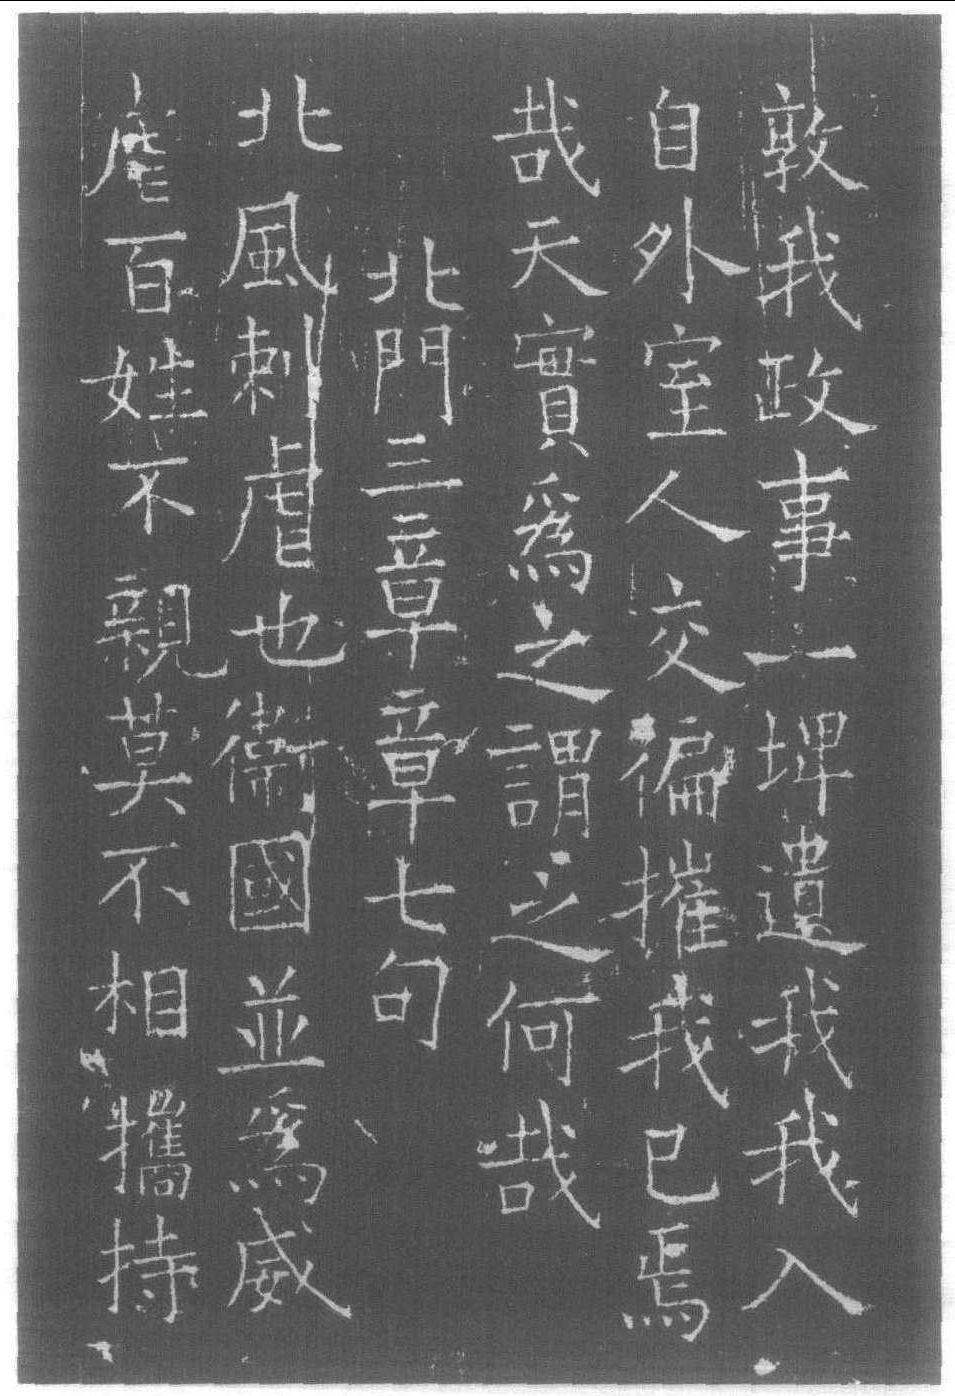 敦我政事一埤遺我我入
自外室人交徧摧我已焉
哉天實爲之謂之何哉
北門三章章七句
北風刺虐也衛國並爲威
虐百姓不親莫不相攜持